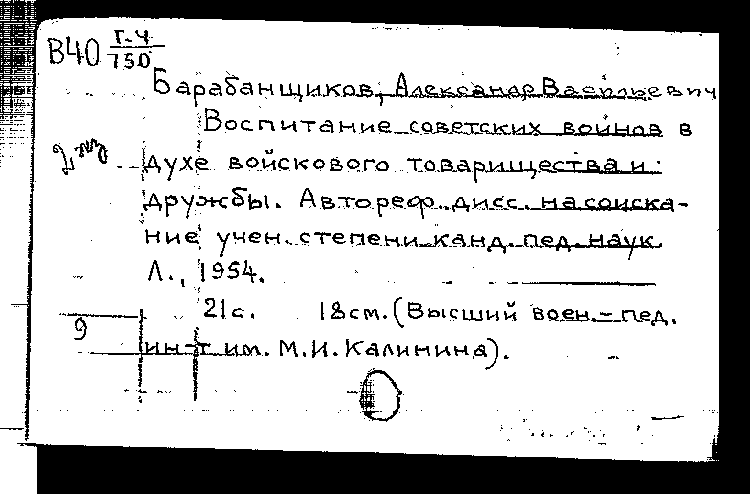 В40 Г-4/750
Барабанщиков, Александр Васильевич
Воспитание советских воинов в
2 экз духе войскового товарищества и
дружбы. Автореф. дисс. на соиска-
ние учен. степени канд. пед. наук
Л., 1954.
21с. 18см. (Высший воен.-пед.
9
ин-т им. М.И. Калинина).